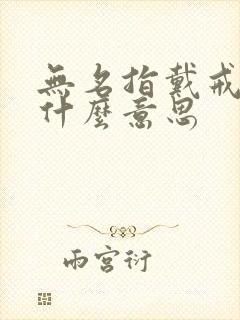 無名指戴戒
什麼意思
雨宮衍